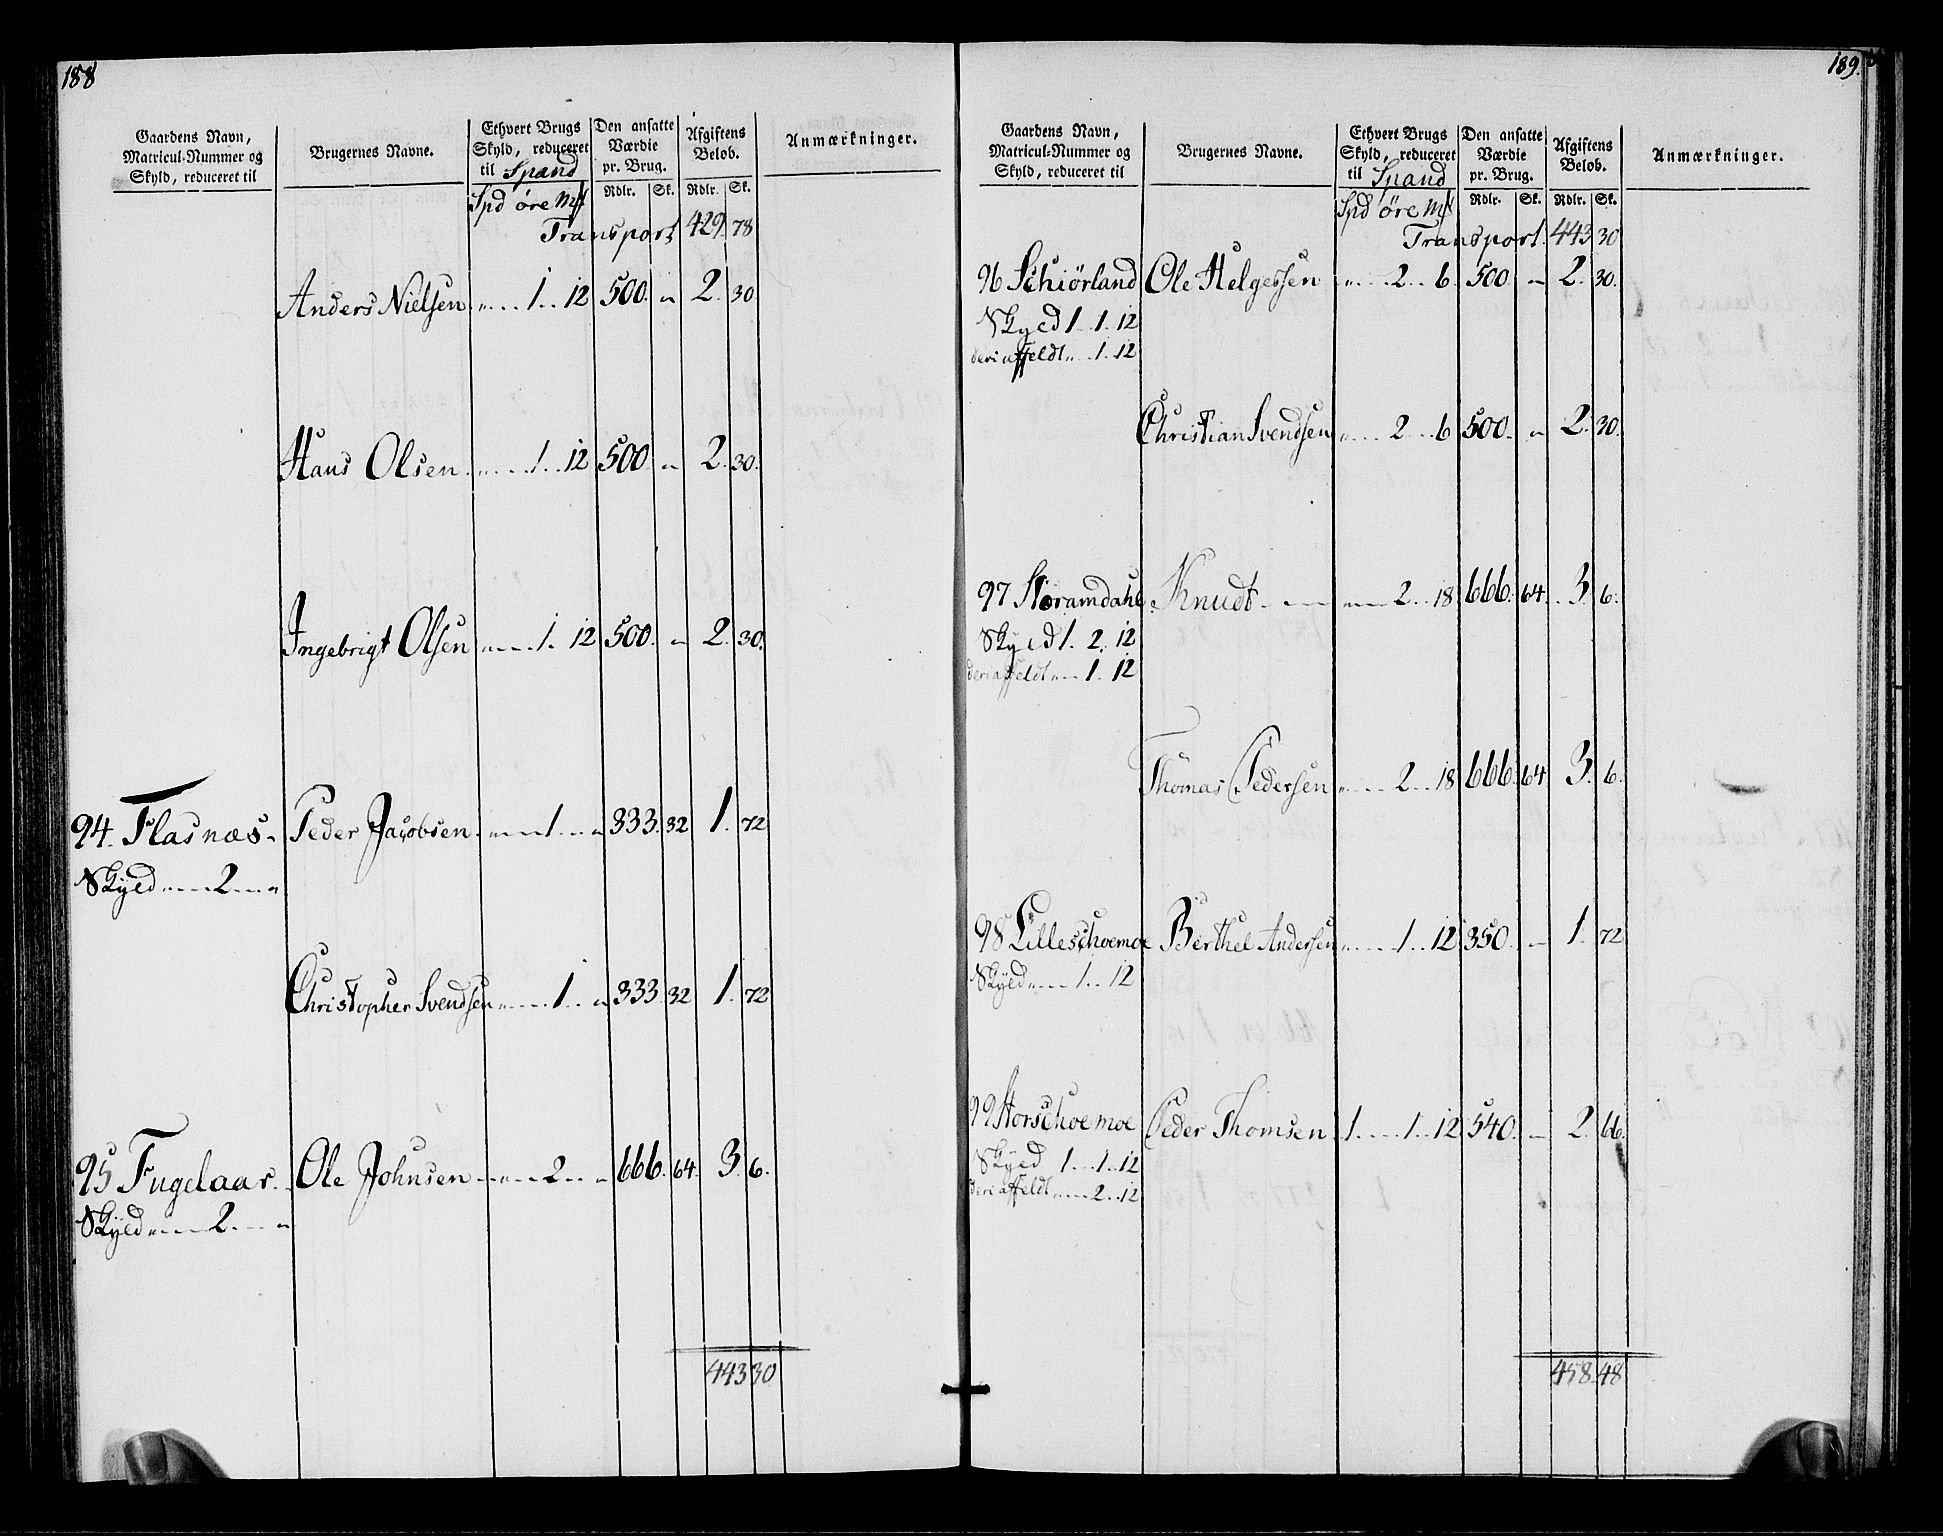 188
Gaardens Navn,
Matricul-Nummer og
Skyld, reduceret til
Brugernes Navne.
Ethvert Brugs
Skyld, reduceret
til Spand
Den ansatte
Værdie
pr. Brug.
Afgiftens
Beløb.
Anmærkninger.
Spd øre Mk
Rdlr. Sk. Rdlr. Sk.
Transport 429. 78
Anders Nielsen „ 1 12 500 „ 2 30
Hans Olsen „ 1 12 500 „ 2 30
Ingebrigt Olsen „ 1 12 500 „ 2 30
94. Flasnæs Peder Jacobsen „ 1 „ 333 32 1 72
Skyld „ 2 „
Christopher Svendsen „ 1 „ 333 32 1 72
95 Fugelaar Ole Johnsen „ 2 „ 666 64 3 6
Skyld „ 2 „
443 30
189
Gaardens Navn,
Matricul-Nummer og
Skyld, reduceret til
Brugernes Navne.
Ethvert Brugs
Skyld, reduceret
til Spand
Den ansatte
Værdie
pr. Brug.
Afgiftens
Beløb.
Anmærkninger.
Spd øre Mk
Rdlr. Sk. Rdlr. Sk.
Transport 443 30
96 Schiörland Ole Helgessen „ 2 6 500 „ 2 30
Skyld 1 1 12
deri affeldt „ 1 12
Christian Svendsen „ 2 6 500 „ 2 30
97 Storamdahl Knudt „ 2 18 666 64 3 6
Skyld 1 2 12
deri affeldt „ 1 12
Thomas Pedersen „ 2 18 666 64 3 6
98 Lilleschoemoe Berthel Andersen „ 1 12 350 „ 1 72
Skyld „ 1 12
99 Storschoemoe Peder Thomsen 1 1 12 540 „ 2 66
Skyld 1 1 12
deri affeldt „ 2 12
458 48